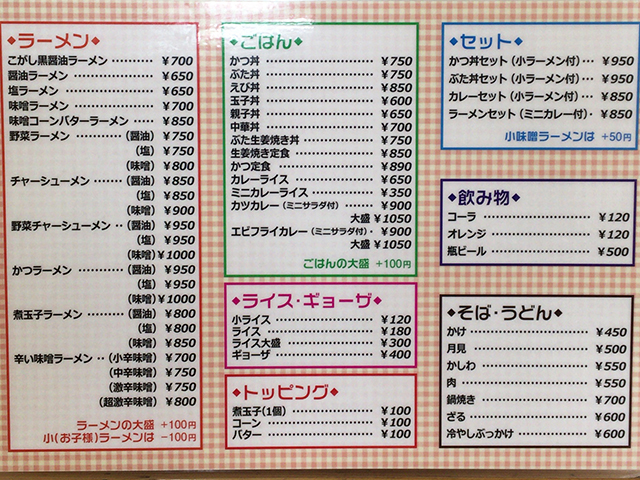 ◆ラーメン◆
こがし黒醤油ラーメン ‥ ¥700
醤油ラーメン ………… ¥650
塩ラーメン …………… ¥650
味噌ラーメン ………… ¥700
味噌コーンバターラーメン ‥ ¥850
野菜ラーメン ……(醤油) ¥750
(塩) ¥750
(味噌) ¥800
チャーシューメン ……(醤油) ¥850
(塩) ¥850
(味噌) ¥900
野菜チャーシューメン …(醤油) ¥950
(塩) ¥950
(味噌) ¥1000
かつラーメン ……(醤油) ¥950
(塩) ¥950
(味噌) ¥1000
煮玉子ラーメン ……(醤油) ¥800
(塩) ¥800
(味噌) ¥850
辛い味噌ラーメン ‥(小辛味噌) ¥700
(中辛味噌) ¥750
(激辛味噌) ¥750
(超激辛味噌) ¥800
ラーメンの大盛 +100円
小(お子様)ラーメンは -100円
◆ごはん◆
かつ丼 …………… ¥750
ぶた丼 …………… ¥750
えび丼 …………… ¥850
玉子丼 …………… ¥600
親子丼 …………… ¥650
中華丼 …………… ¥700
ぶた生姜焼き丼 …… ¥750
生姜焼き定食 ……… ¥850
かつ定食 ………… ¥890
カレーライス ……… ¥650
ミニカレーライス …… ¥350
カツカレー(ミニサラダ付)‥ ¥900
大盛 ¥1050
エビフライカレー(ミニサラダ付)・ ¥900
大盛 ¥1050
ごはんの大盛 +100円
◆ライス・ギョーザ◆
小ライス …………… ¥120
ライス …………… ¥180
ライス大盛 ………… ¥300
ギョーザ …………… ¥400
◆トッピング◆
煮玉子(1個) ……… ¥100
コーン …………… ¥100
バター …………… ¥100
◆セット◆
かつ丼セット(小ラーメン付)… ¥950
ぶた丼セット(小ラーメン付)… ¥950
カレーセット(小ラーメン付)… ¥850
ラーメンセット(ミニカレー付)・ ¥850
小味噌ラーメンは +50円
◆飲み物◆
コーラ …………… ¥120
オレンジ …………… ¥120
瓶ビール …………… ¥500
◆そば・うどん◆
かけ …………… ¥450
月見 …………… ¥500
かしわ …………… ¥550
肉 …………… ¥550
鍋焼き …………… ¥700
ざる …………… ¥600
冷やしぶっかけ ……… ¥600